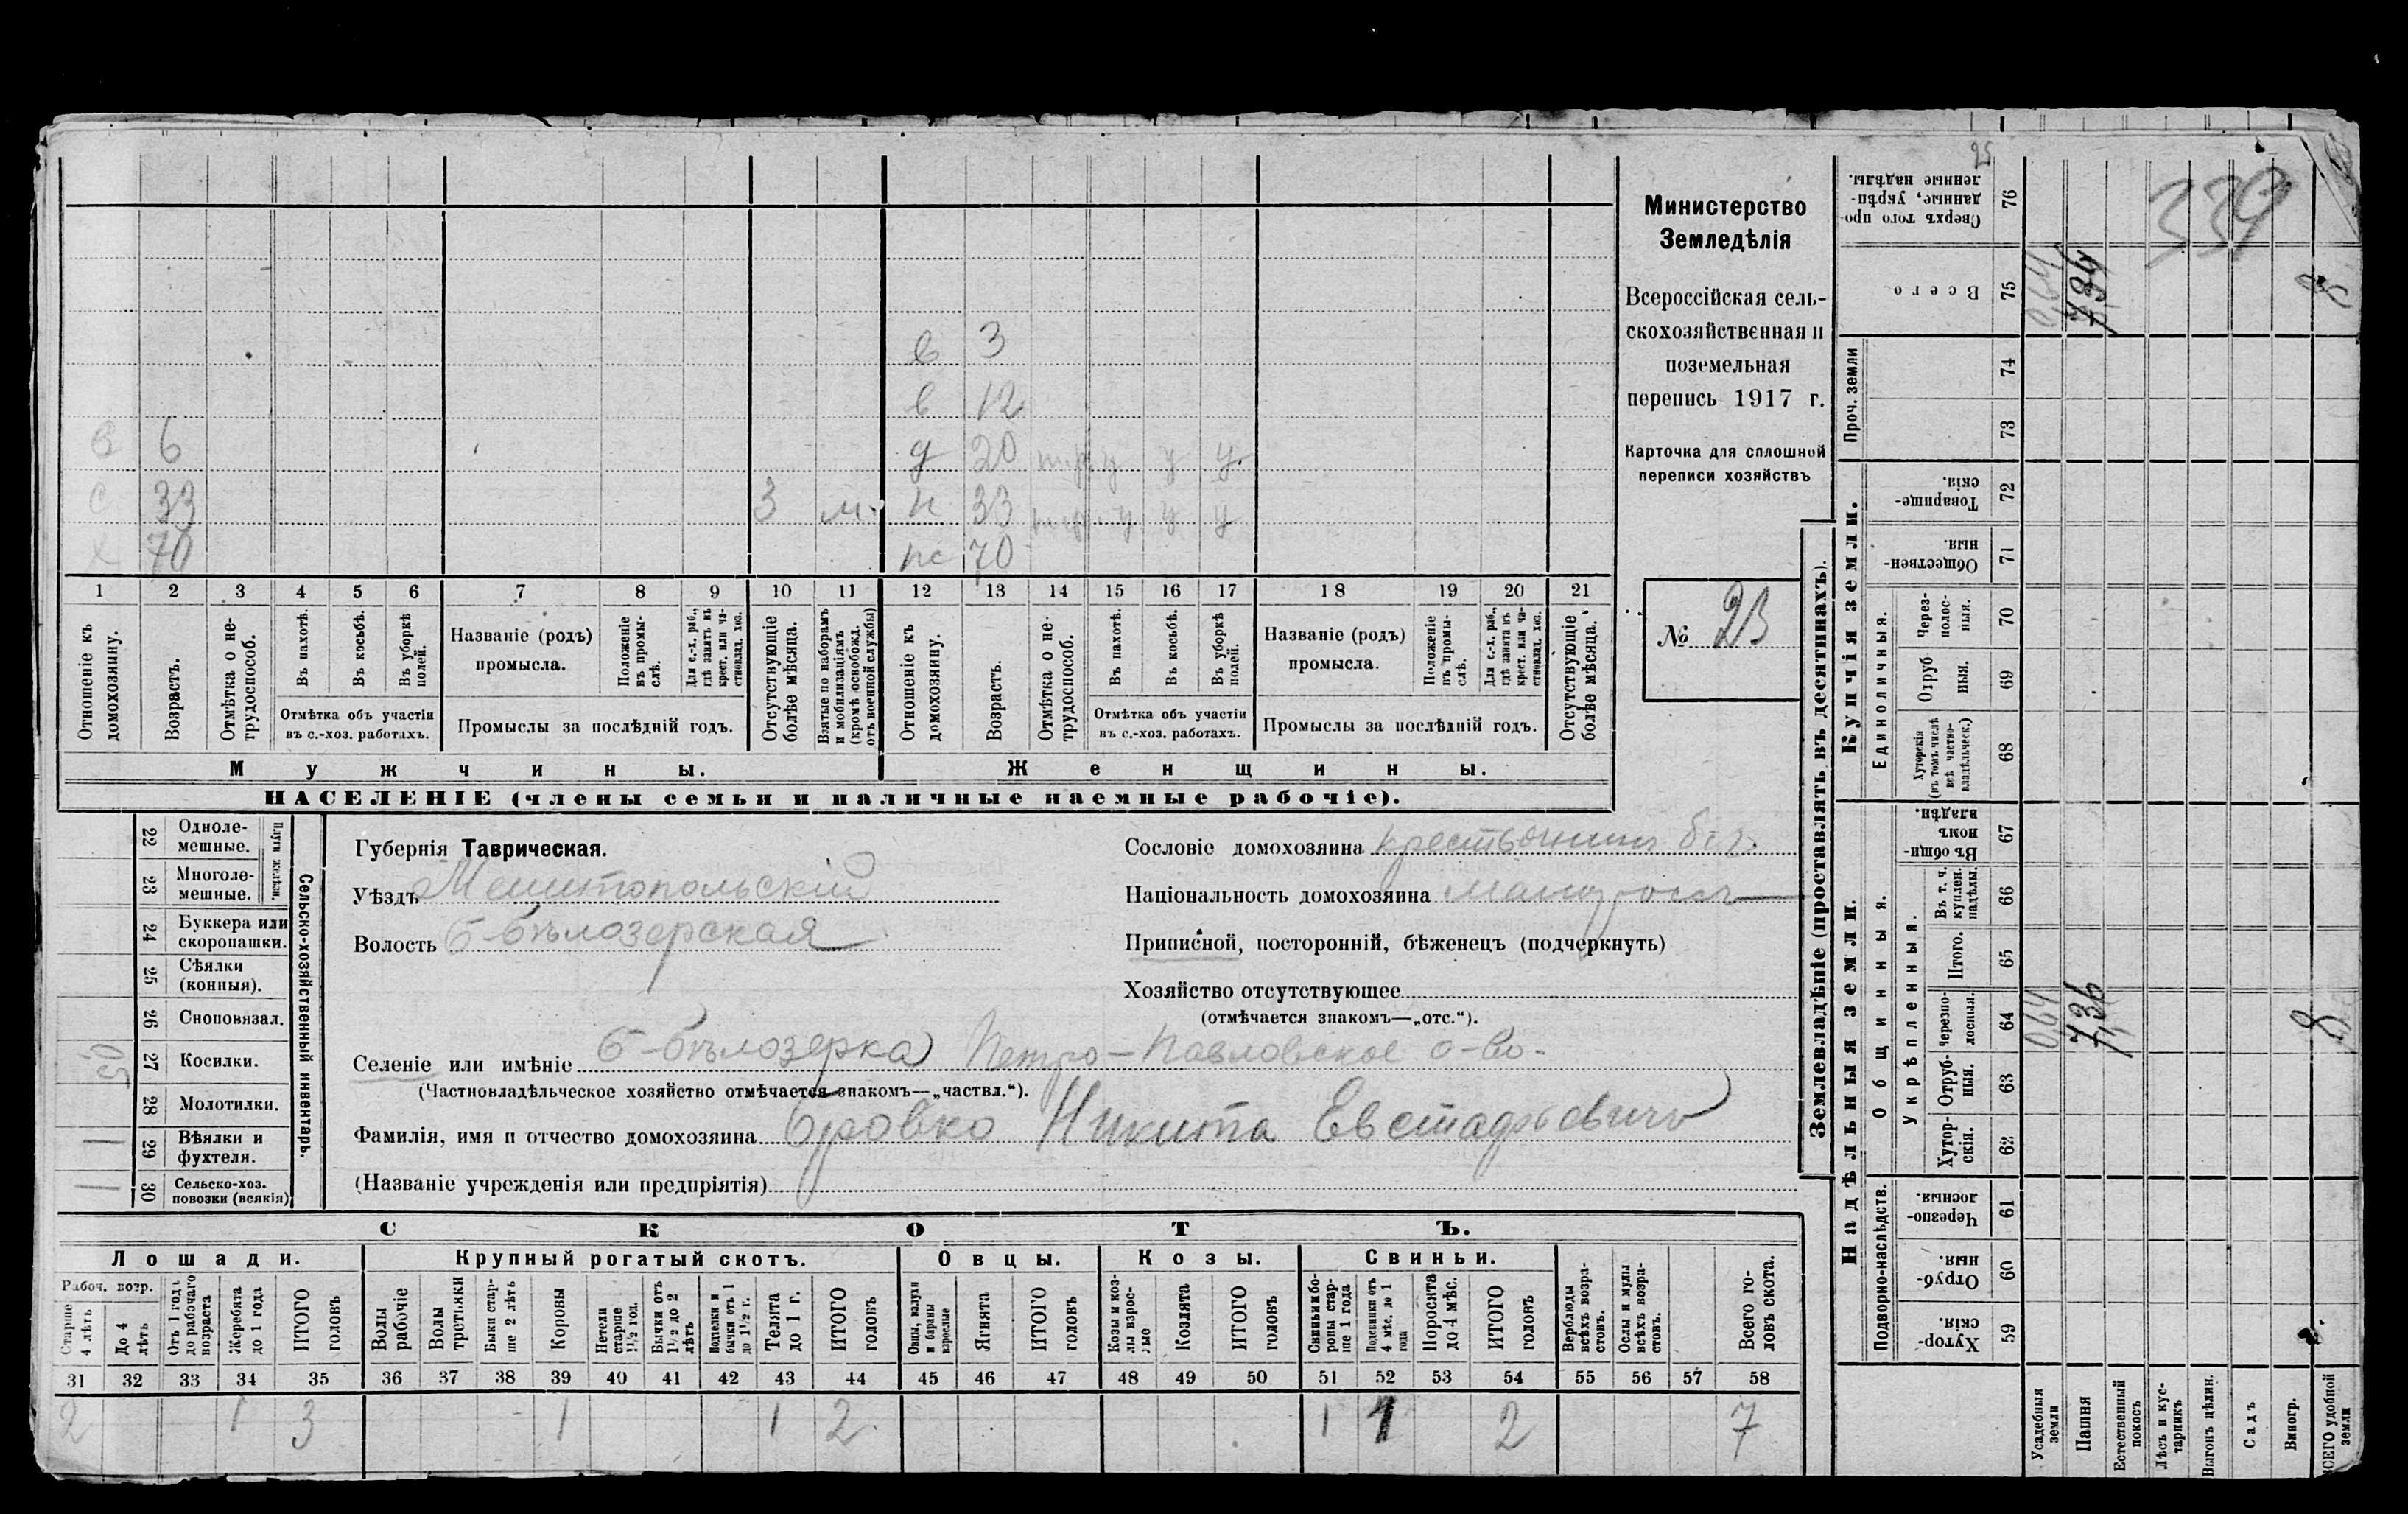 339
Министерство
Земледѣлія
Всероссійская сель-
скохозяйственная и
поземельная
перепись 1917 г.
Карточка для сплошной
переписи хозяйствъ
№ 23
в 3
в 12
в 6 д 20 у у у
с 33 3 м. н 33 у у у
х 70 пс 70
1 2 3 4 5 6 7 8 9 10 11 12 13 14 15 16 17 18 19 20 21
Отношеніе къ домохозяину.
Возрастъ.
Отмѣтка о не-трудоспособ.
Въ пахотѣ.
Въ косьбѣ.
Въ уборкѣ полей.
Отмѣтка объ участіи
въ с.-хоз. работахъ.
Названіе (родъ)
промысла.
Положеніе въ промы-слѣ.
Для с.-х. раб., гдѣ занятъ въ крест. или ча-стновлад. хоз.
Промыслы за послѣдній годъ.
Отсутствующіе болѣе мѣсяца.
Взятые по наборамъ и мобилизаціямъ (кромѣ освобожд. отъ военной службы)
Отношеніе къ домохозяину.
Возрастъ.
Отмѣтка о не-трудоспособ.
Въ пахотѣ.
Въ косьбѣ.
Въ уборкѣ полей.
Отмѣтка объ участіи
въ с.-хоз. работахъ.
Названіе (родъ)
промысла.
Положеніе въ промы-слѣ.
Для с.-х. раб., гдѣ занята въ крест. или ча-стновлад. хоз.
Промыслы за послѣдній годъ.
Отсутствующіе болѣе мѣсяца.
Мужчины.
Женщины.
НАСЕЛЕНІЕ (члены семьи и наличные наемные рабочіе).
Сельско-хозяйственный инвентарь.
Плуги желѣзн.
22 Одноле-мешные.
23 Многоле-мешные.
24 Буккера или скоропашки.
25 Сѣялки (конныя).
26 Сноповязал.
27 Косилки.
28 Молотилки.
29 Вѣялки и фухтеля. 1
30 Сельско-хоз. повозки (всякія) 1
Губернія Таврическая.
Уѣздъ Мелитопольскій
Волость Б-бѣлозерская
Сословіе домохозяина крестьянинъ
Національность домохозяина малороссъ
Приписной, посторонній, бѣженецъ (подчеркнуть)
Хозяйство отсутствующее
(отмѣчается знакомъ—„отс.“).
Селеніе или имѣніе Б-бѣлозерка Петро-Павловское о-во.
(Частновладѣльческое хозяйство отмѣчается знакомъ—„частвл.“).
Фамилія, имя и отчество домохозяина Бровко Никита Евстафьевичъ
(Названіе учрежденія или предпріятія)
СКОТЪ.
Лошади.
Крупный рогатый скотъ.
Овцы.
Козы.
Свиньи.
Рабоч. возр.
Старше 4 лѣтъ
До 4 лѣтъ
Отъ 1 года до рабочаго возраста
Жеребята до 1 года
ИТОГО головъ
Волы рабочіе
Волы третьяки
Быки стар-ше 2 лѣтъ
Коровы
Нетели старше 1½ год.
Бычки отъ 1½ до 2 лѣтъ
Подтелки и бычки отъ 1 до 1½ г.
Телята до 1 г.
ИТОГО головъ
Овцы, валухи и бараны взрослые
Ягнята
ИТОГО головъ
Козы и коз-лы взрос-лые
Козлята
ИТОГО головъ
Свиньи и бо-ровы стар-ше 1 года
Подсвинки отъ 4 мѣс. до 1 года
Поросята до 4 мѣс.
ИТОГО головъ
Верблюды всѣхъ возра-стовъ.
Ослы и мулы всѣхъ возра-стовъ.
Всего го-ловъ скота.
31 32 33 34 35 36 37 38 39 40 41 42 43 44 45 46 47 48 49 50 51 52 53 54 55 56 57 58
2 1 3 1 1 2 1 1 2 7
Землевладѣніе (проставлять въ десятинахъ).
Купчія земли.
Надѣльныя земли.
Сверхъ того про-данные, укрѣп-ленные надѣлы. 76
Всего 75 0,64 7,36 8
Проч. земли 74
73
Товарище-скія. 72
Обществен-ныя. 71
Единоличныя.
Через-полос-ныя. 70
Отруб-ныя. 69
Хуторскія (въ томъ числѣ всѣ частно-владѣльческ.) 68
Общинныя.
Въ общин-номъ владѣн. 67
Укрѣпленныя.
Въ т. ч. куплен. надѣлы. 66
Итого. 65
Черезпо-лосныя. 64 0,64 7,36 8
Отруб-ныя. 63
Хутор-скія. 62
Подворно-наслѣдств.
Черезпо-лосныя. 61
Отруб-ныя. 60
Хутор-скія. 59
Усадебныя земли
Пашня
Естественный покосъ
Лѣсъ и кус-тарникъ
Выгонъ цѣлин.
Садъ
Виногр.
ВСЕГО удобной земли